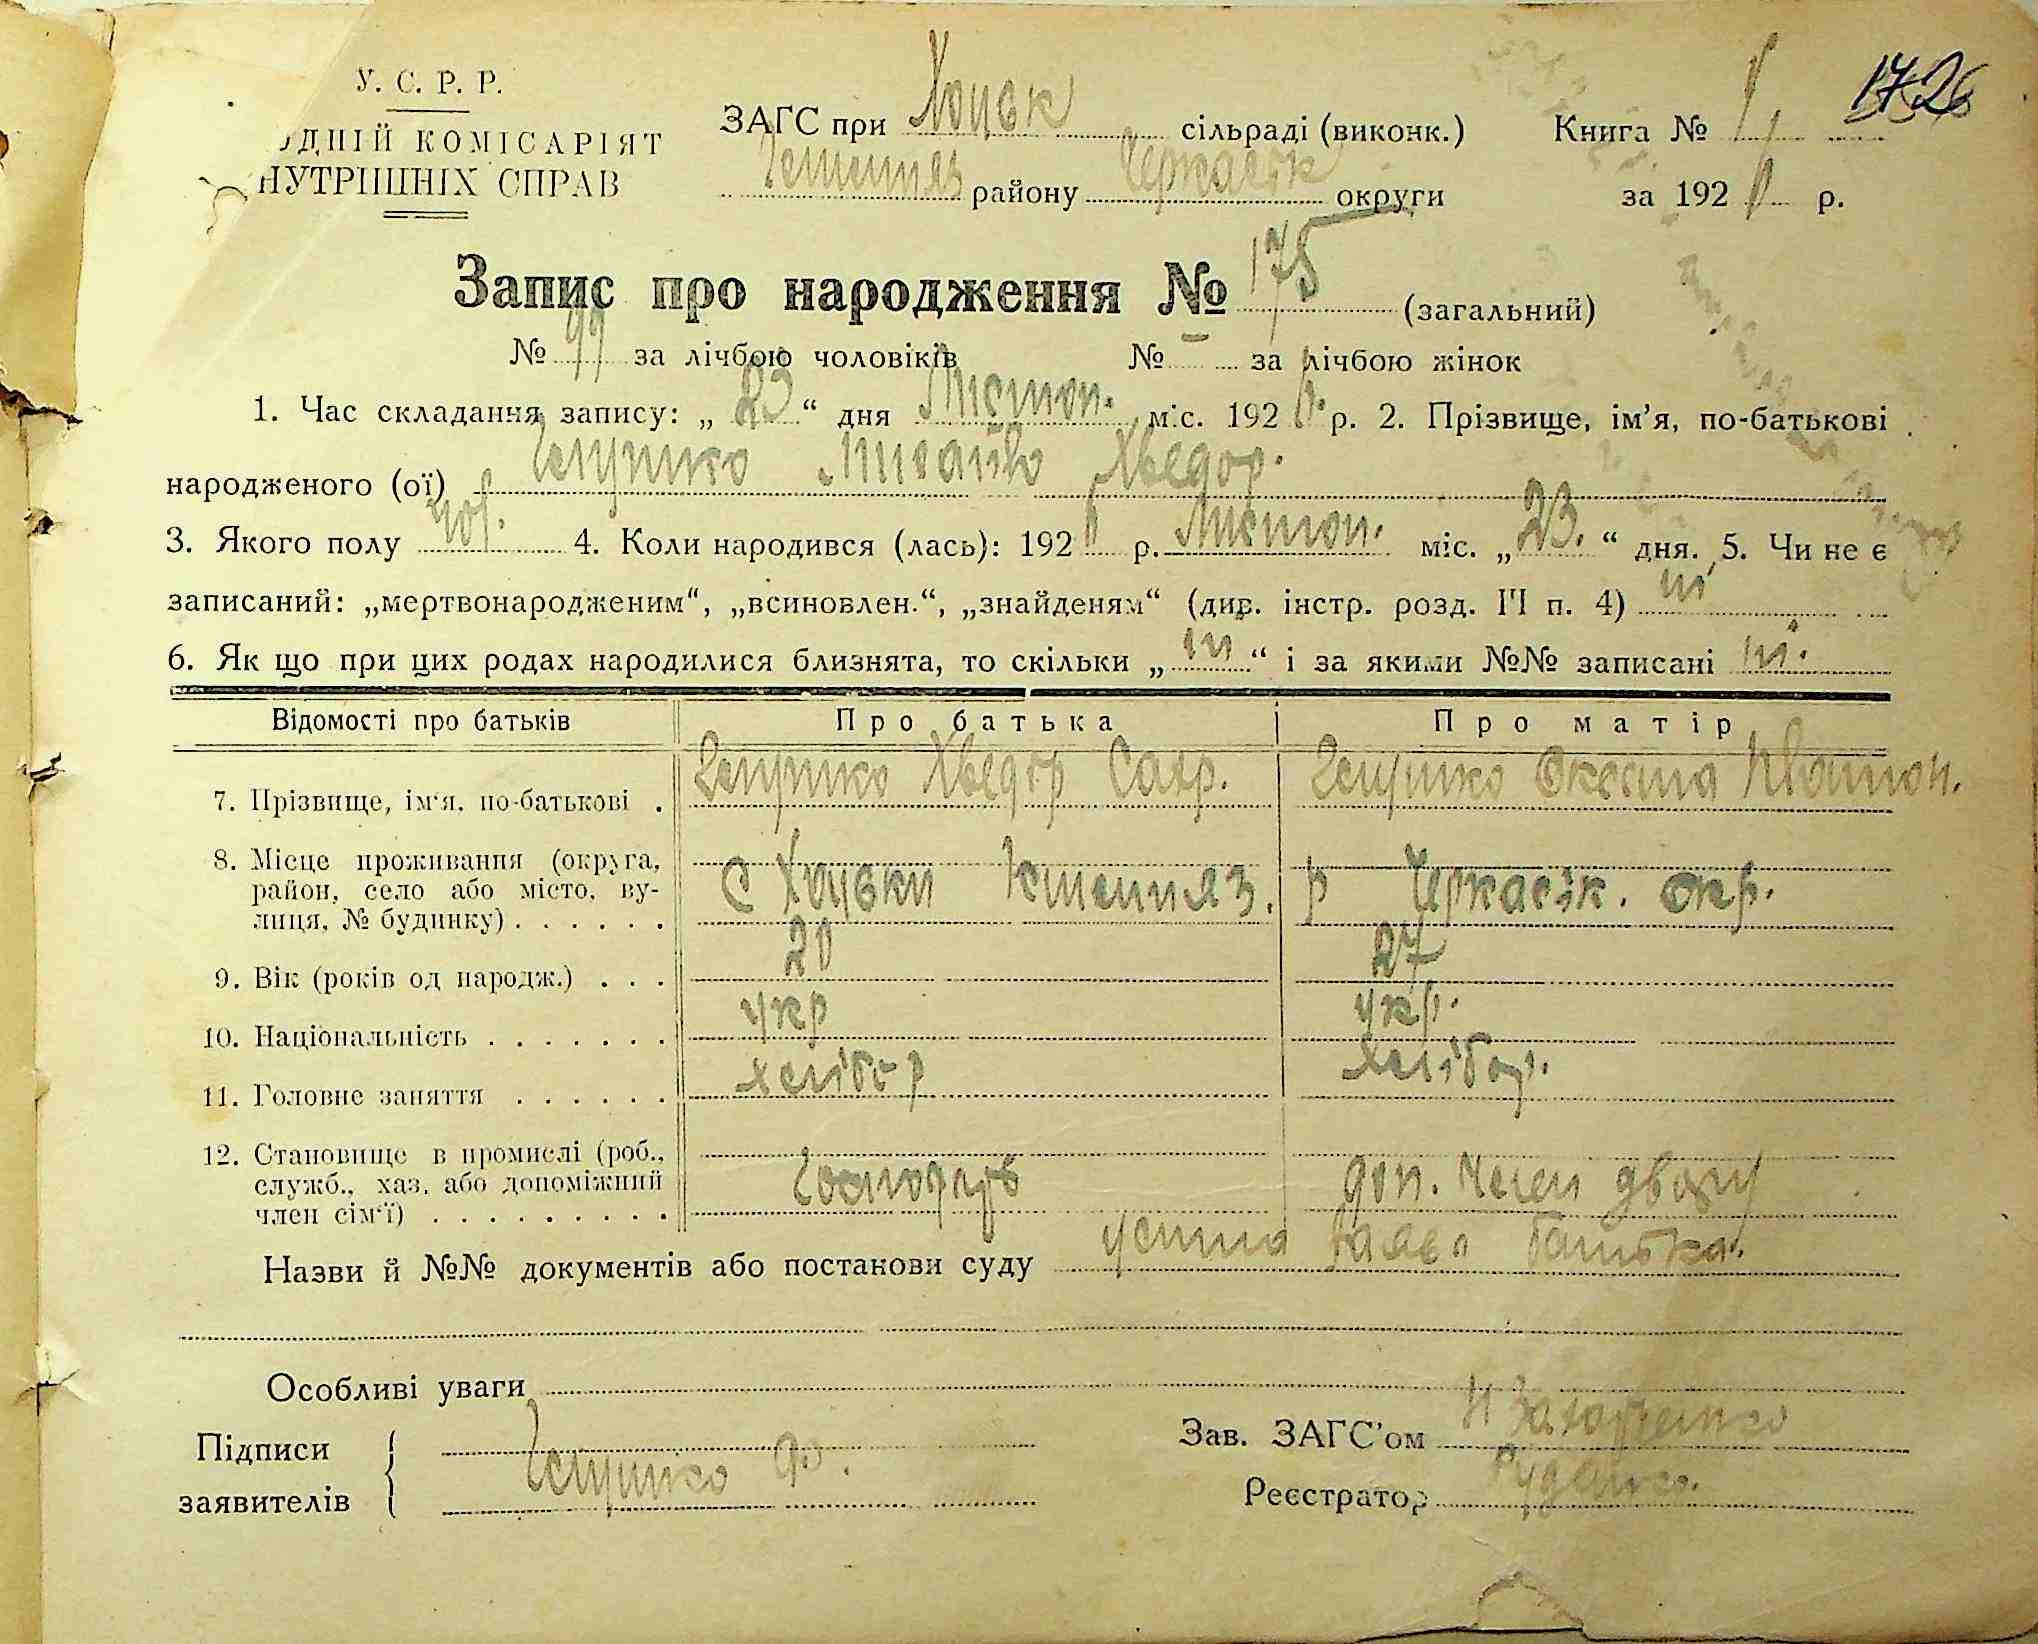 У. С. Р. Р.
ОДНІЙ КОМІСАРІЯТ
НУТРІШНІХ СПРАВ
ЗАГС при Хоцьк сільраді (виконк.) Книга № 1 1726
району Черкаськ округи за 1926 р.
Запис про народження № 175 (загальний)
№ 99 за лічбою чоловіків № — за лічбою жінок
1. Час складання запису: „ 23 “ дня Листоп. міс. 1926 р. 2. Прізвище, ім’я, по-батькові
народженого (ої) Михайло Хведор.
3. Якого полу чол. 4. Коли народився (лась): 1926 р. Листоп. міс. „ 23. “ дня. 5. Чи не є
записаний: „мертвонародженим“, „всиновлен.“, „знайденям“ (див. інстр. розд. III п. 4) ні
6. Як що при цих родах народилися близнята, то скільки „ ні “ і за якими №№ записані ні.
Відомості про батьків Про батька Про матір
7. Прізвище, ім‘я, по-батькові . Хведор Сахр. Оксана Платон.
8. Місце проживання (округа,
район, село або місто, ву-
лиця, № будинку) . . . . . . С Хоцьки р Черкаськ. окр.
9. Вік (років од народж.) . . . 20 27
10. Національність . . . . . . . укр укр.
11. Головне заняття . . . . . . хлібор хлібор.
12. Становище в промислі (роб.,
служб., хаз. або допоміжний
член сім‘ї) . . . . . . . . . Господарь доп. член двору
Назви й №№ документів або постанови суду устна заява батька.
Особливі уваги
Підписи
заявителів
Зав. ЗАГС’ом Н Захарченко
Реєстратор Руданко.